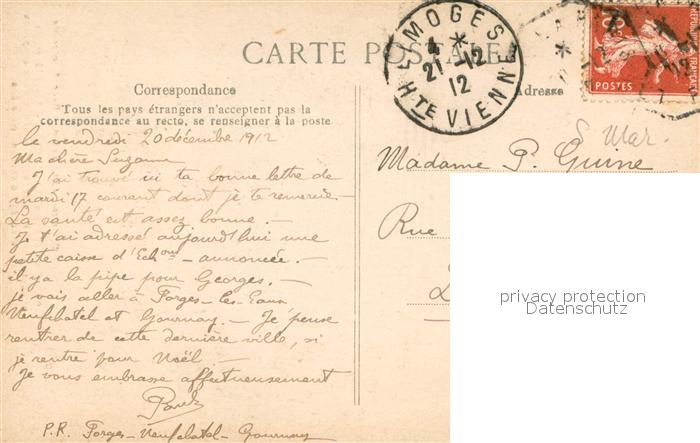 CARTE POSTALE
Correspondance
Tous les pays étrangers n'acceptent pas la
correspondance au recto, se renseigner à la poste.
Adresse
LIMOGES
4 *
21 -12
12
HTE VIENNE
POSTES
le vendredi 20 décembre 1912
Ma chère Suzanne
J'ai trouvé ici ta bonne lettre de
mardi 17 courant dont je te remercie -
La santé est assez bonne. -
Je t'ai adressé aujourd'hui une
petite caisse d'Echons - annoncée. -
il y a la pipe pour Georges. -
je vais aller à Forges-les-Eaux
Neufchatel et Gournay. - Je pense
rentrer de cette dernière ville, si
je rentre pour Noël -
Je vous embrasse affectueusement
P.R. Forges - Neufchatel - Gournay
Madame P. Guine
Rue
privacy protection
Datenschutz